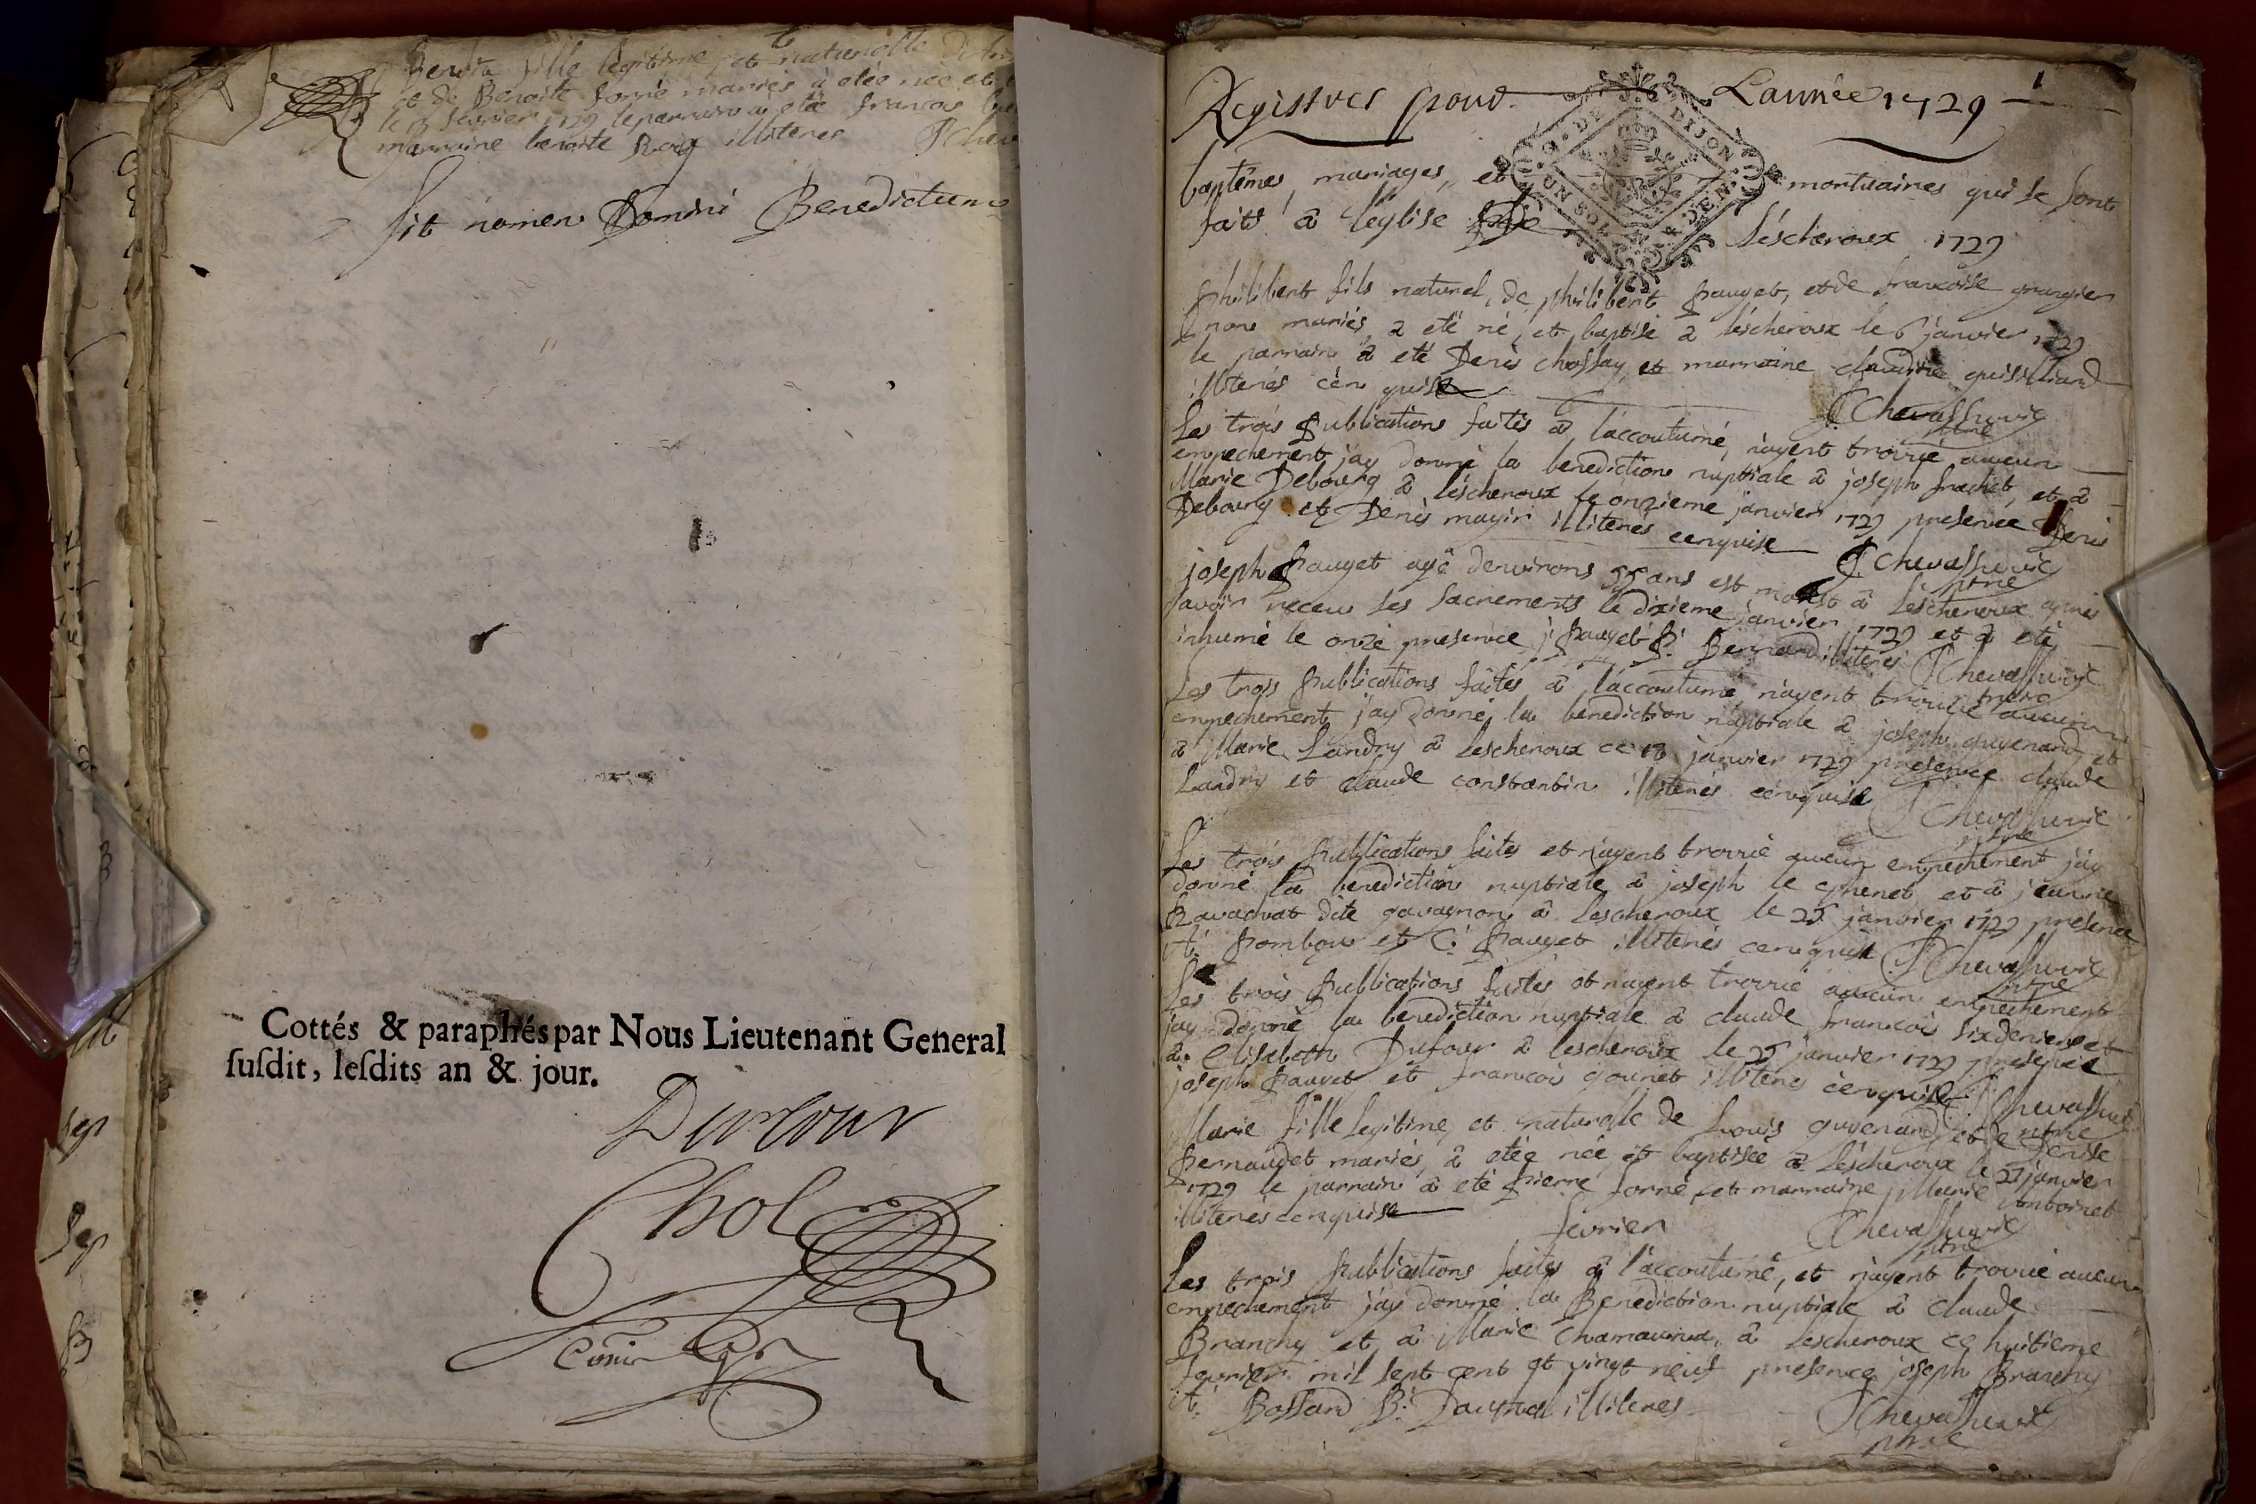 fille legitime et naturelle
et de Benoite forné mariés à etée née et
le fevrier 1729 le parrain a eté francois
marraine benoite Roy illiteres
Sit nomen Domini Benedictum
Cottés & paraphés par Nous Lieutenant General
susdit, lesdits an & jour.
Chol
Registres pour L'année 1729
1
G. DE DIJON
UN SOL
baptêmes, mariages, et mortuaires qui se sont
faits â l'eglise de Léscheroux 1729
philibert fils naturel, de philibert pauget, et de francoise grangier
non mariés, a eté né, et baptisé a léscheroux le 6 janvier 1729
le parrain â eté Denis chossay et marraine claudine
illiterés cén quise
Chevassuvie
ptre
Les trois Publications faites â l'accoutumé, n'ayent trouvé aucun
empechement jay donné la benediction nuptiale â joseph frachet, et â
Marie Debourg â léscheroux le onzieme janvier 1729 presence Denis
Debourg et Denis mayir illiterés cenquise
Chevassuvie
ptre
joseph Pauget agé denvirons 55 ans est mort â Léscheroux aprés
avoir receu ses sacrements le dixieme janvier 1729 et â eté
inhumé le onze presence j: pauget P: Bernard illiterés
Chevassuvie
ptre
Les trois Publications faites â l'accoutumé n'ayent trouvé aucun
empechement jay donné la benediction nuptiale â joseph guyenard, et
â Marie Landry â Lescheroux ce 18 janvier 1729 presence claude
Landry et claude constantin illiterés cenquise
Chevassuvie
ptre
Les trois Publications faites et n'ayent trouvé aucun empechement jay
donné la benediction nuptiale â joseph le et â jeanne
Ravacvat dite gavagnon â Lescheroux le 25 janvier 1729 presence
et C: pauget illiterés cenquise
Chevassuvie
ptre
Les trois Publications faites et n'ayent trouvé aucun empechement
jay donné la benediction nuptiale â claude francois sixdenier et
â Elisabeth Dufour â lescheroux le 25 janvier 1729 presence
joseph Pauget et francois gounet illiteres cenquise
Chevassuvie
ptre
Marie fille legitime, et naturelle de Louis guyenard et de Denise
Pernaudet mariés, â etée née, et baptisée â Léscheroux le 27 janvier
1729 le parrain â eté pierre forné, et marraine Marie
illiterés cenquise
Chevassuvie
ptre
fevrier
Les trois Publications faites â l'accoutumé, et n'ayent trouvé aucun
empechement jay donné la Benediction nuptiale â claude
Branchy et â Marie Chamauroux â Lescheroux ce huitieme
fevrier mil sept cent et vingt neuf presence joseph Branchy
et Bossard B: illiteres
Chevassuvie
ptre